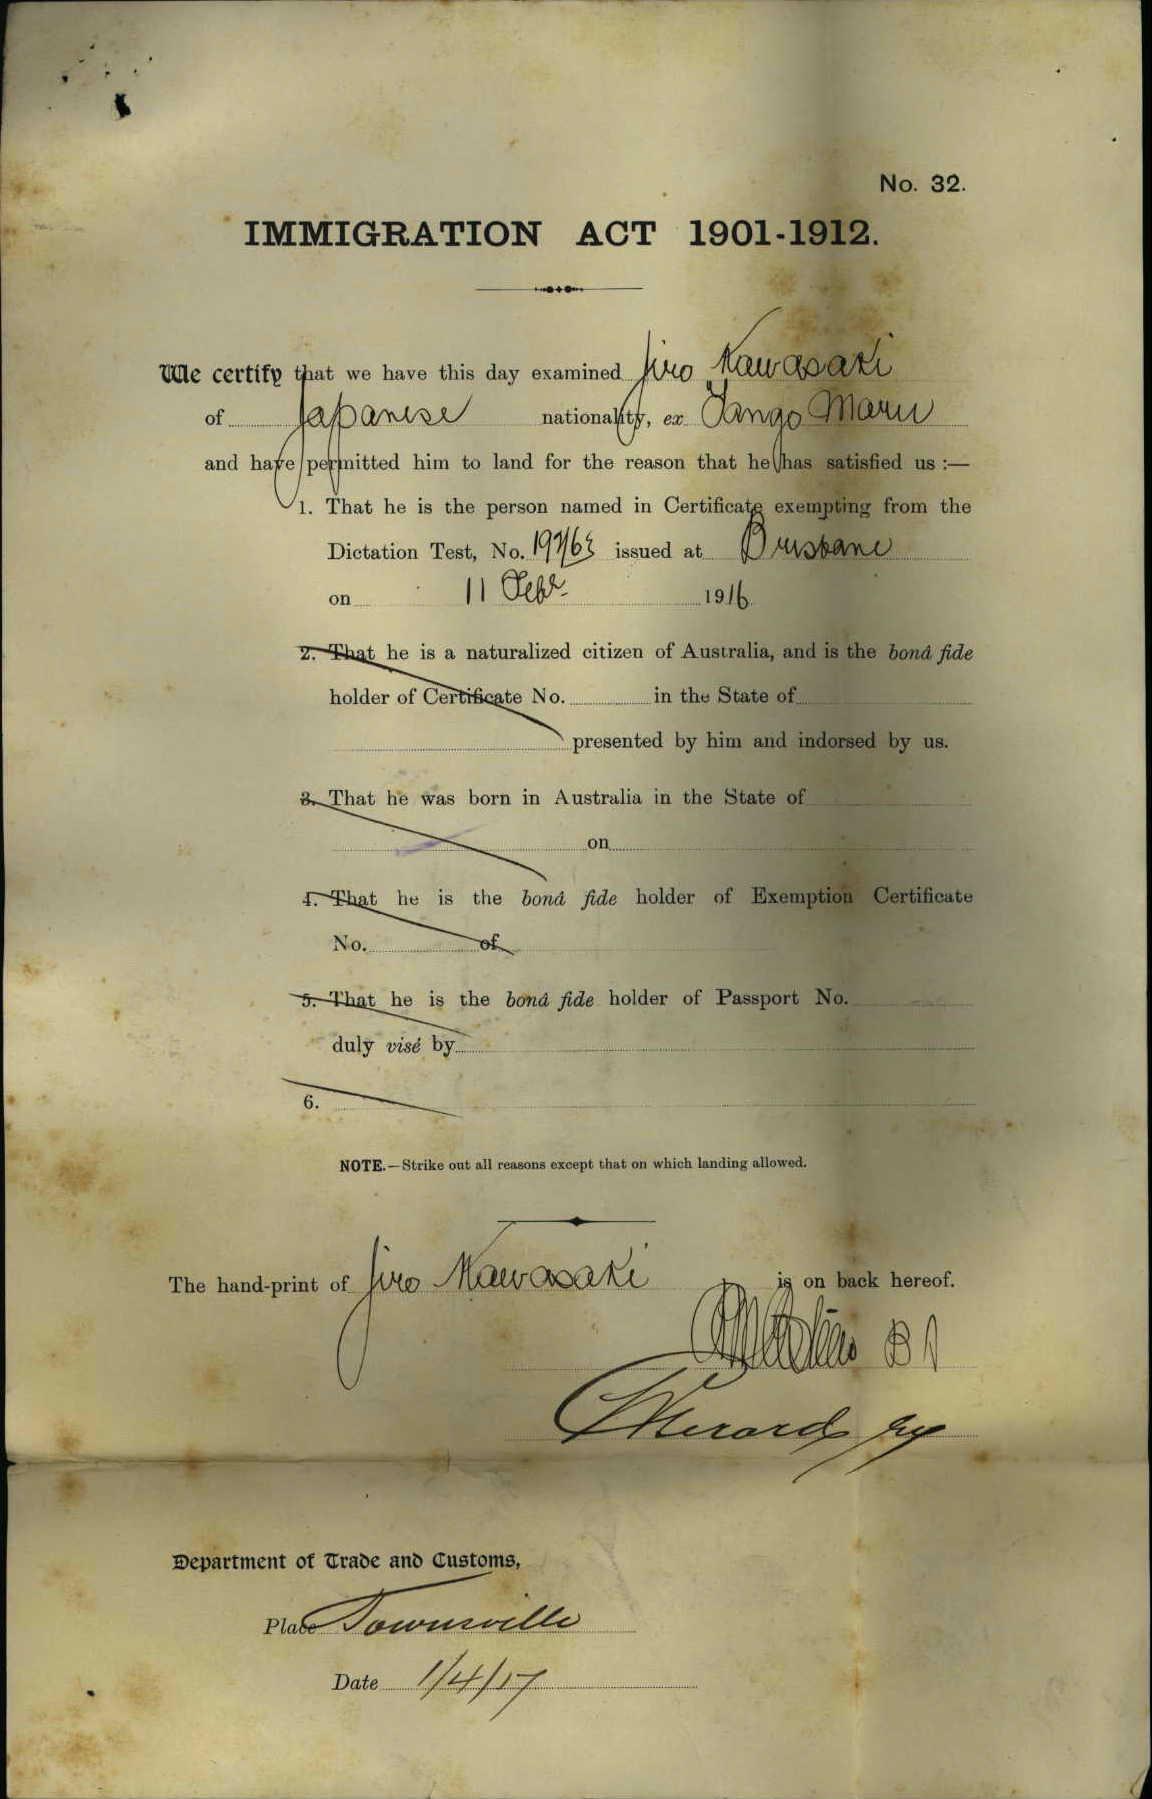 No. 32.
IMMIGRATION ACT 1901-1912.
We certify that we have this day examined Jiro Kawasaki
of Japanese nationality, ex Tango Maru
and have permitted him to land for the reason that he has satisfied us :—
1. That he is the person named in Certificate exempting from the
Dictation Test, No. issued at Brisbane
on 11 Feby. 1916
2. That he is a naturalized citizen of Australia, and is the bonâ fide
holder of Certificate No. in the State of
presented by him and indorsed by us.
3. That he was born in Australia in the State of
on
4. That he is the bonâ fide holder of Exemption Certificate
No. of
5. That he is the bonâ fide holder of Passport No.
duly visé by
6.
NOTE.—Strike out all reasons except that on which landing allowed.
The hand-print of Jiro Kawasaki is on back hereof.
Department of Trade and Customs,
Place Townsville
Date 1/4/17